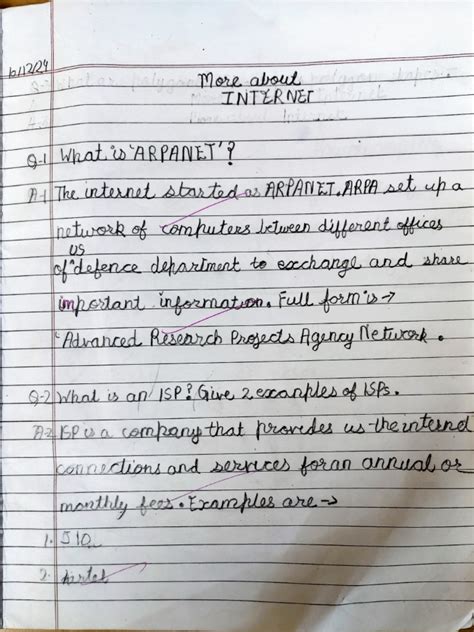 10/12/24
More about
INTERNET
Q-1 What is 'ARPANET'?
A-1 The internet started as ARPANET. ARPA set up a
network of computers between different offices
US
of ^ defence department to exchange and share
important information. Full form is →
'Advanced Research Projects Agency Network.
Q-2 What is an ISP? Give 2 examples of ISPs.
A-2 ISP is a company that provides us the internet
connections and services for an annual or
monthly fees. Examples are →
1. JIO
2. Airtel